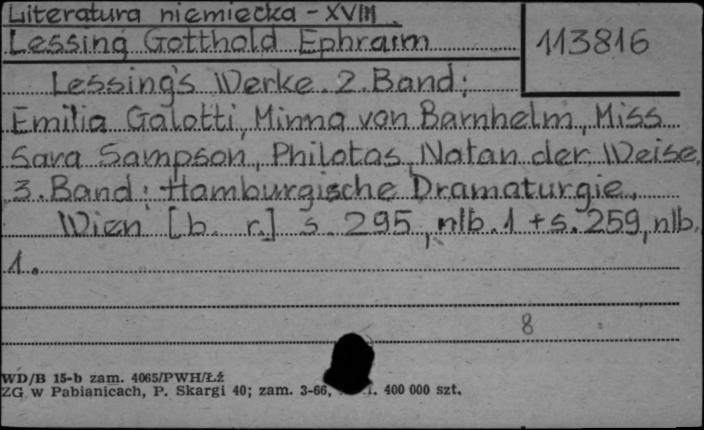 Literatura niemiecka - XVIII
Lessing Gotthold Ephraim
113816
Lessing's Werke. 2. Band:
Emilia Galotti, Minna von Barnhelm, Miss
Sara Sampson, Philotas, Natan der Weise,
3. Band: Hamburgische Dramaturgie.
Wien [b. r.] s. 295, nlb. 1 + s. 259, nlb.
1.
8
WD/B 15-b zam. 4065/PWH/Łź
ZG w Pabianicach, P. Skargi 40; zam. 3-66, 400 000 szt.